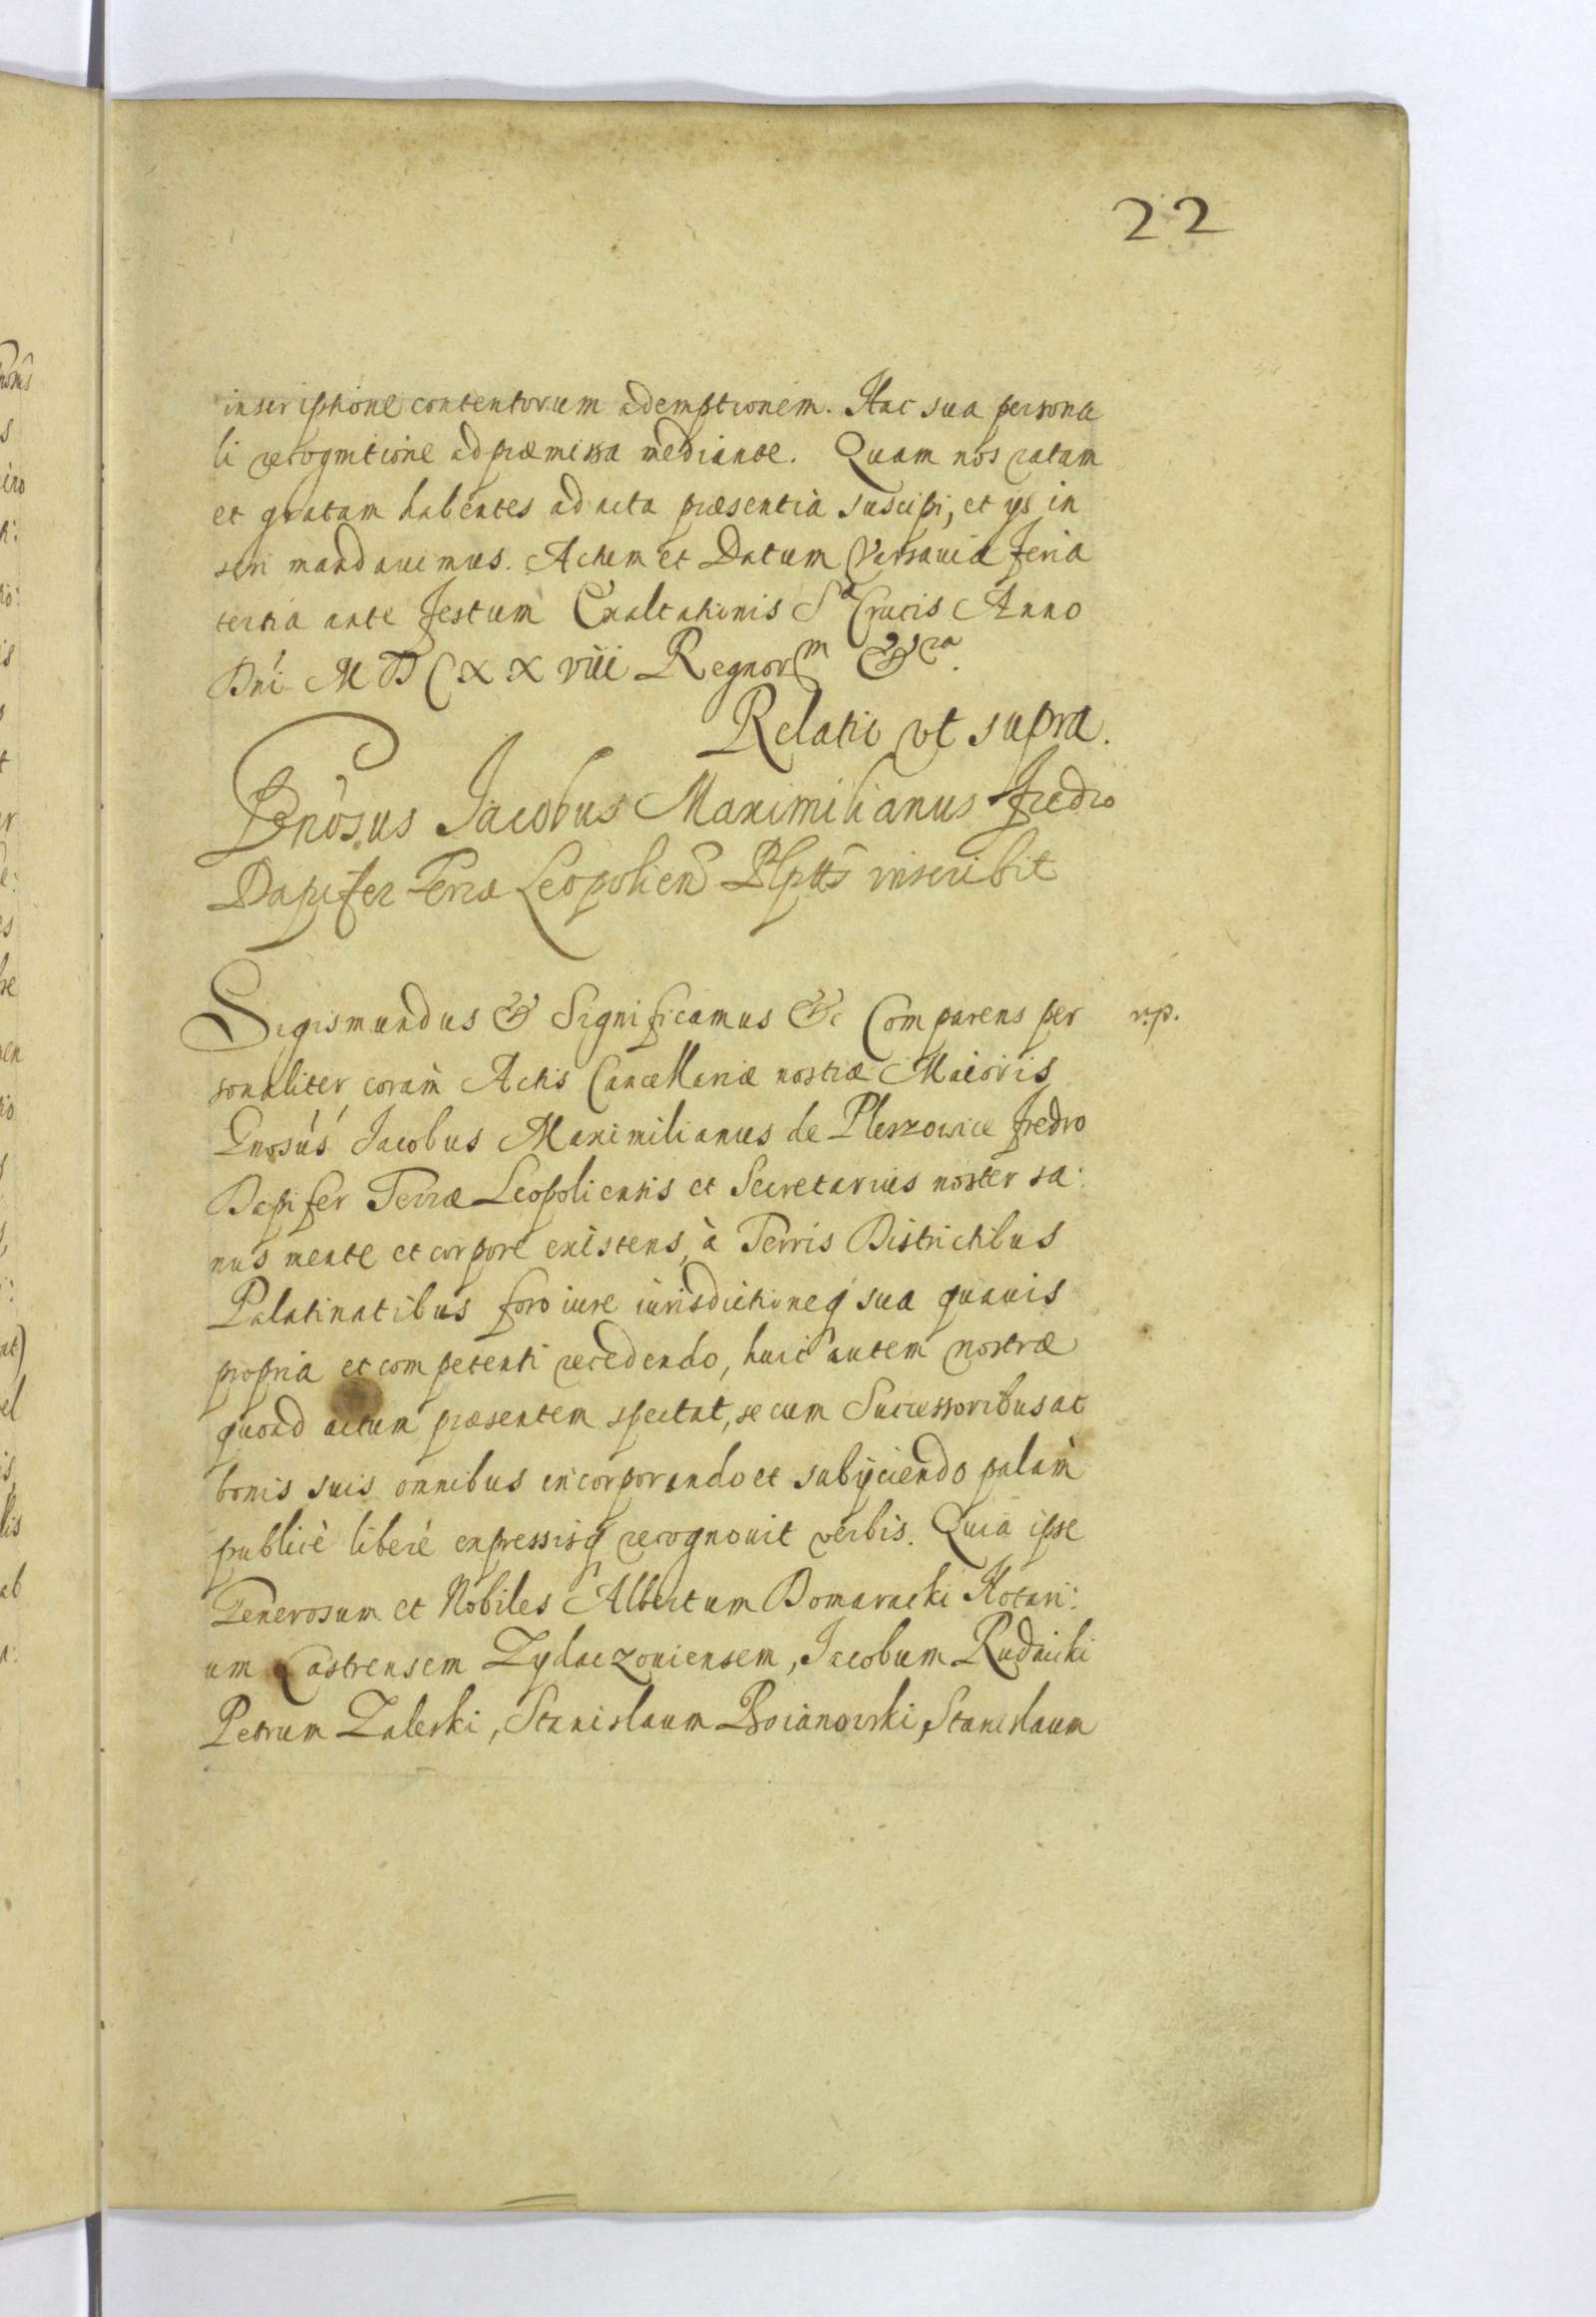 22
inscriptione contentorum ademptionem. Hac sua persona
li recognitione ad præmissa mediante. Quam nos ratam
et gratam habentes ad acta præsentia suscipi, et ijs in
seri mandauimus. Actum et Datum Varsauiæ feria
tertia ante festum Exaltationis Sᵃ Crucis Anno
Dni MDCXXviii Regnorᵐ &ᵣₐ.
Relatio vt supra.
Gnosus Jacobus Maximilianus Fredro
Dapifer Terræ Leopolien inscribit
Sigismundus & Significamus &c Comparens per
r.p.
sonaliter coram Actis Cancellariæ nostræ Maioris
Gnosus Jacobus Maximilianus de Pleszowice Fredro
Dapifer Terræ Leopoliensis et Secretarius noster sa:
nus mente et corpore existens, à Terris Districtibus
Palatinatibus foro iure iurisdictioneq sua quauis
propria et competenti recedendo, huic autem nostræ
quoad actum præsentem spectat, se cum Successoribus ac
bonis suis omnibus incorporando et subijciendo palàm
publicè liberè expressisq recognouit verbis. Quia ipse
Generosum et Nobiles Albertum Domaracki Notari:
um Castrensem Zydaczouiensem, Jacobum Rudnicki
Petrum Zaleski, Stanislaum Boianowski, Stanislaum